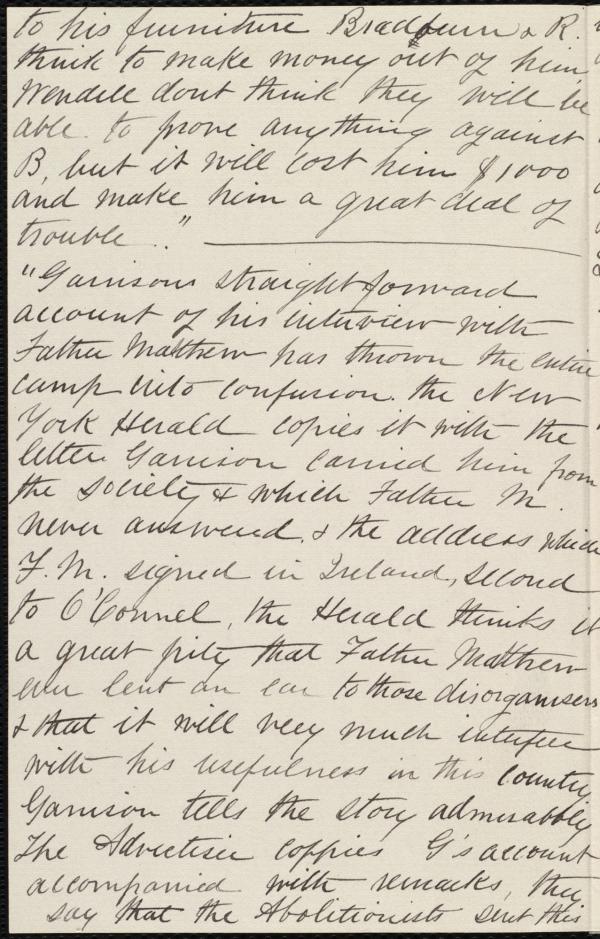 to his furniture Bradburn & R.
think to make money out of him
Wendell dont think they will be
able to prove anything against
B, but it will cost him $1000
and make him a great deal of
trouble."
"Garrisons straightforward
account of his interview with
Father Matthew has thrown the entire
camp into confusion. the New
York Herald copies it with the
letter Garrison carried him from
the society & which Father M.
never answered, & the address which
F. M. signed in Ireland, second
to O'Connel, the Herald thinks it
a great pity that Father Matthew
ever lent an ear to those disorganisers
& that it will very much interfere
with his usefulness in this country
Garrison tells the story admirably
The Advertiser coppies G's account
accompanied with remarks, they
say that the Abolitionists sent this